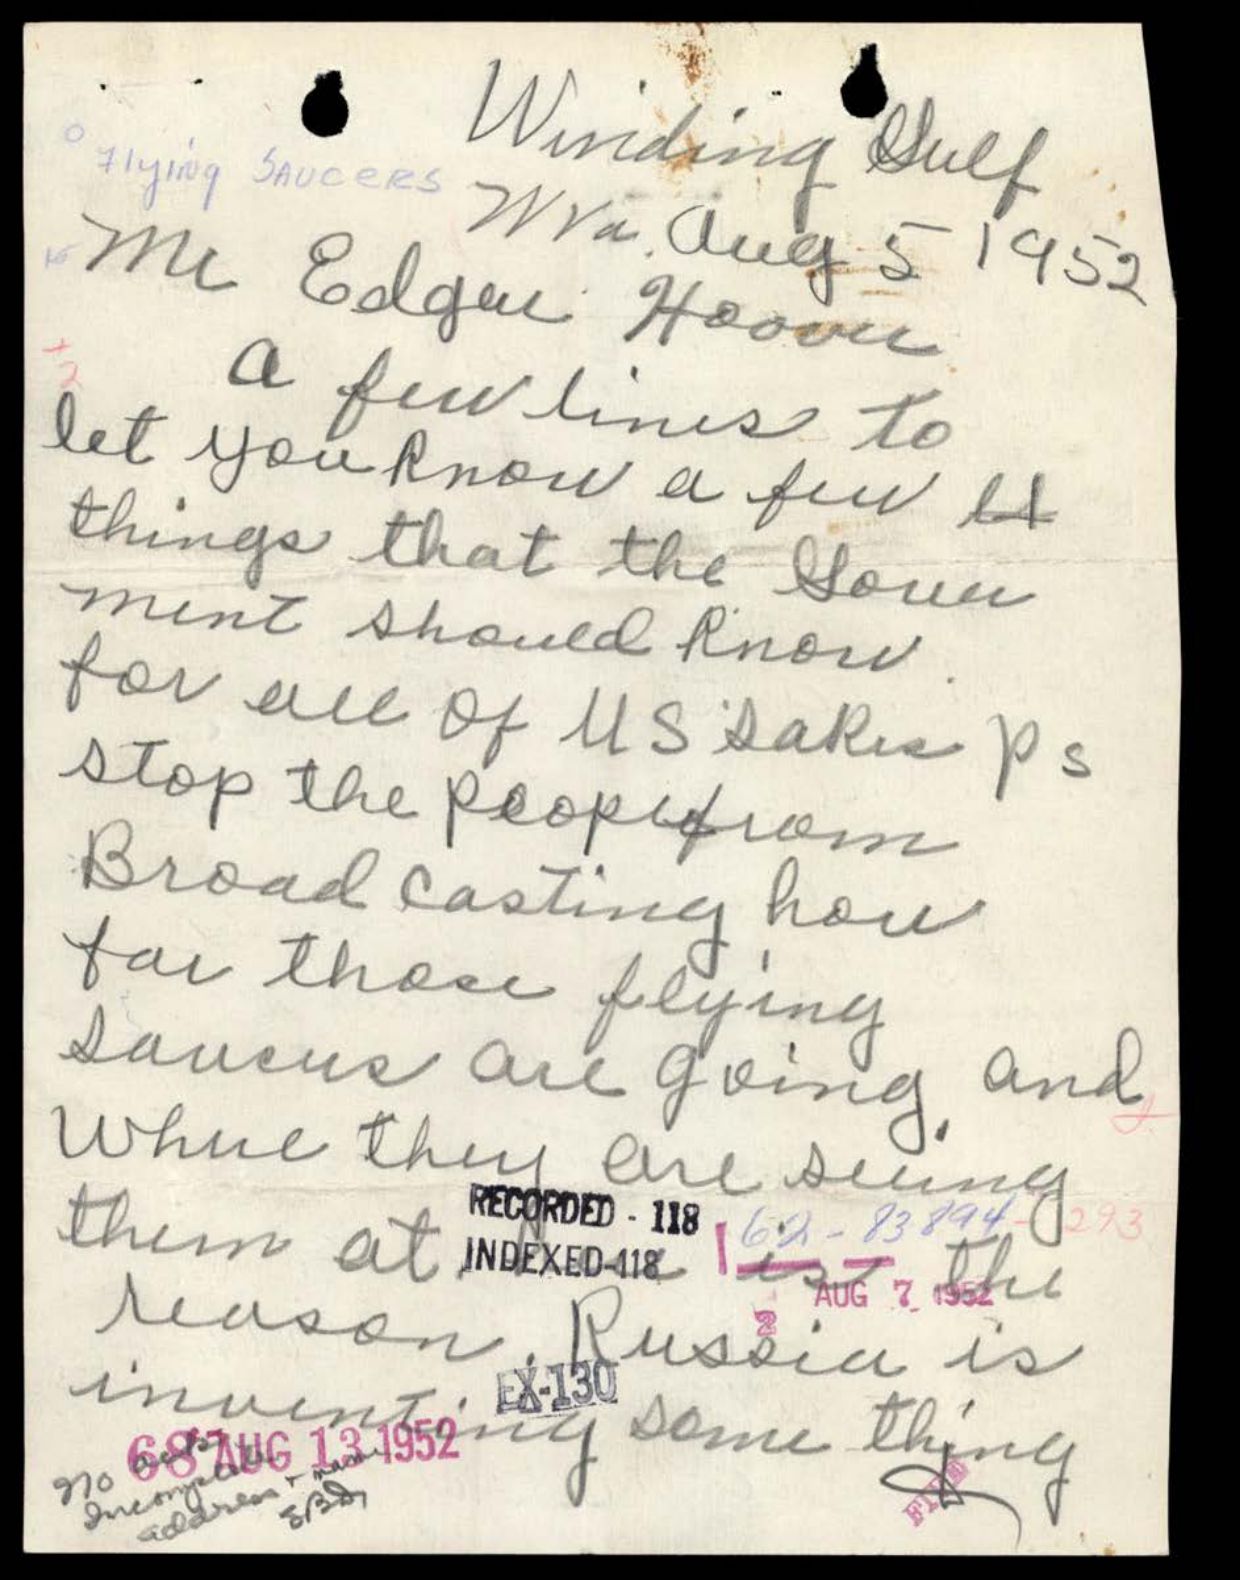 Winding Gulf
Flying SAUCERS
W Va. Aug 5 1952
Mr Edgar Hoover
A few lines to
let you know a few
things that the Gover
ment should know.
for all of US sakes ps
stop the people from
Broad casting how
far those flying
saucers are going, and
Where they are seeing
them at. is the
RECORDED - 118
INDEXED-118
62-83894-293
AUG 7 1952
reason. Russia is
EX-130
inventing some thing
68 AUG 13 1952
no ack
Incomplete
address + name